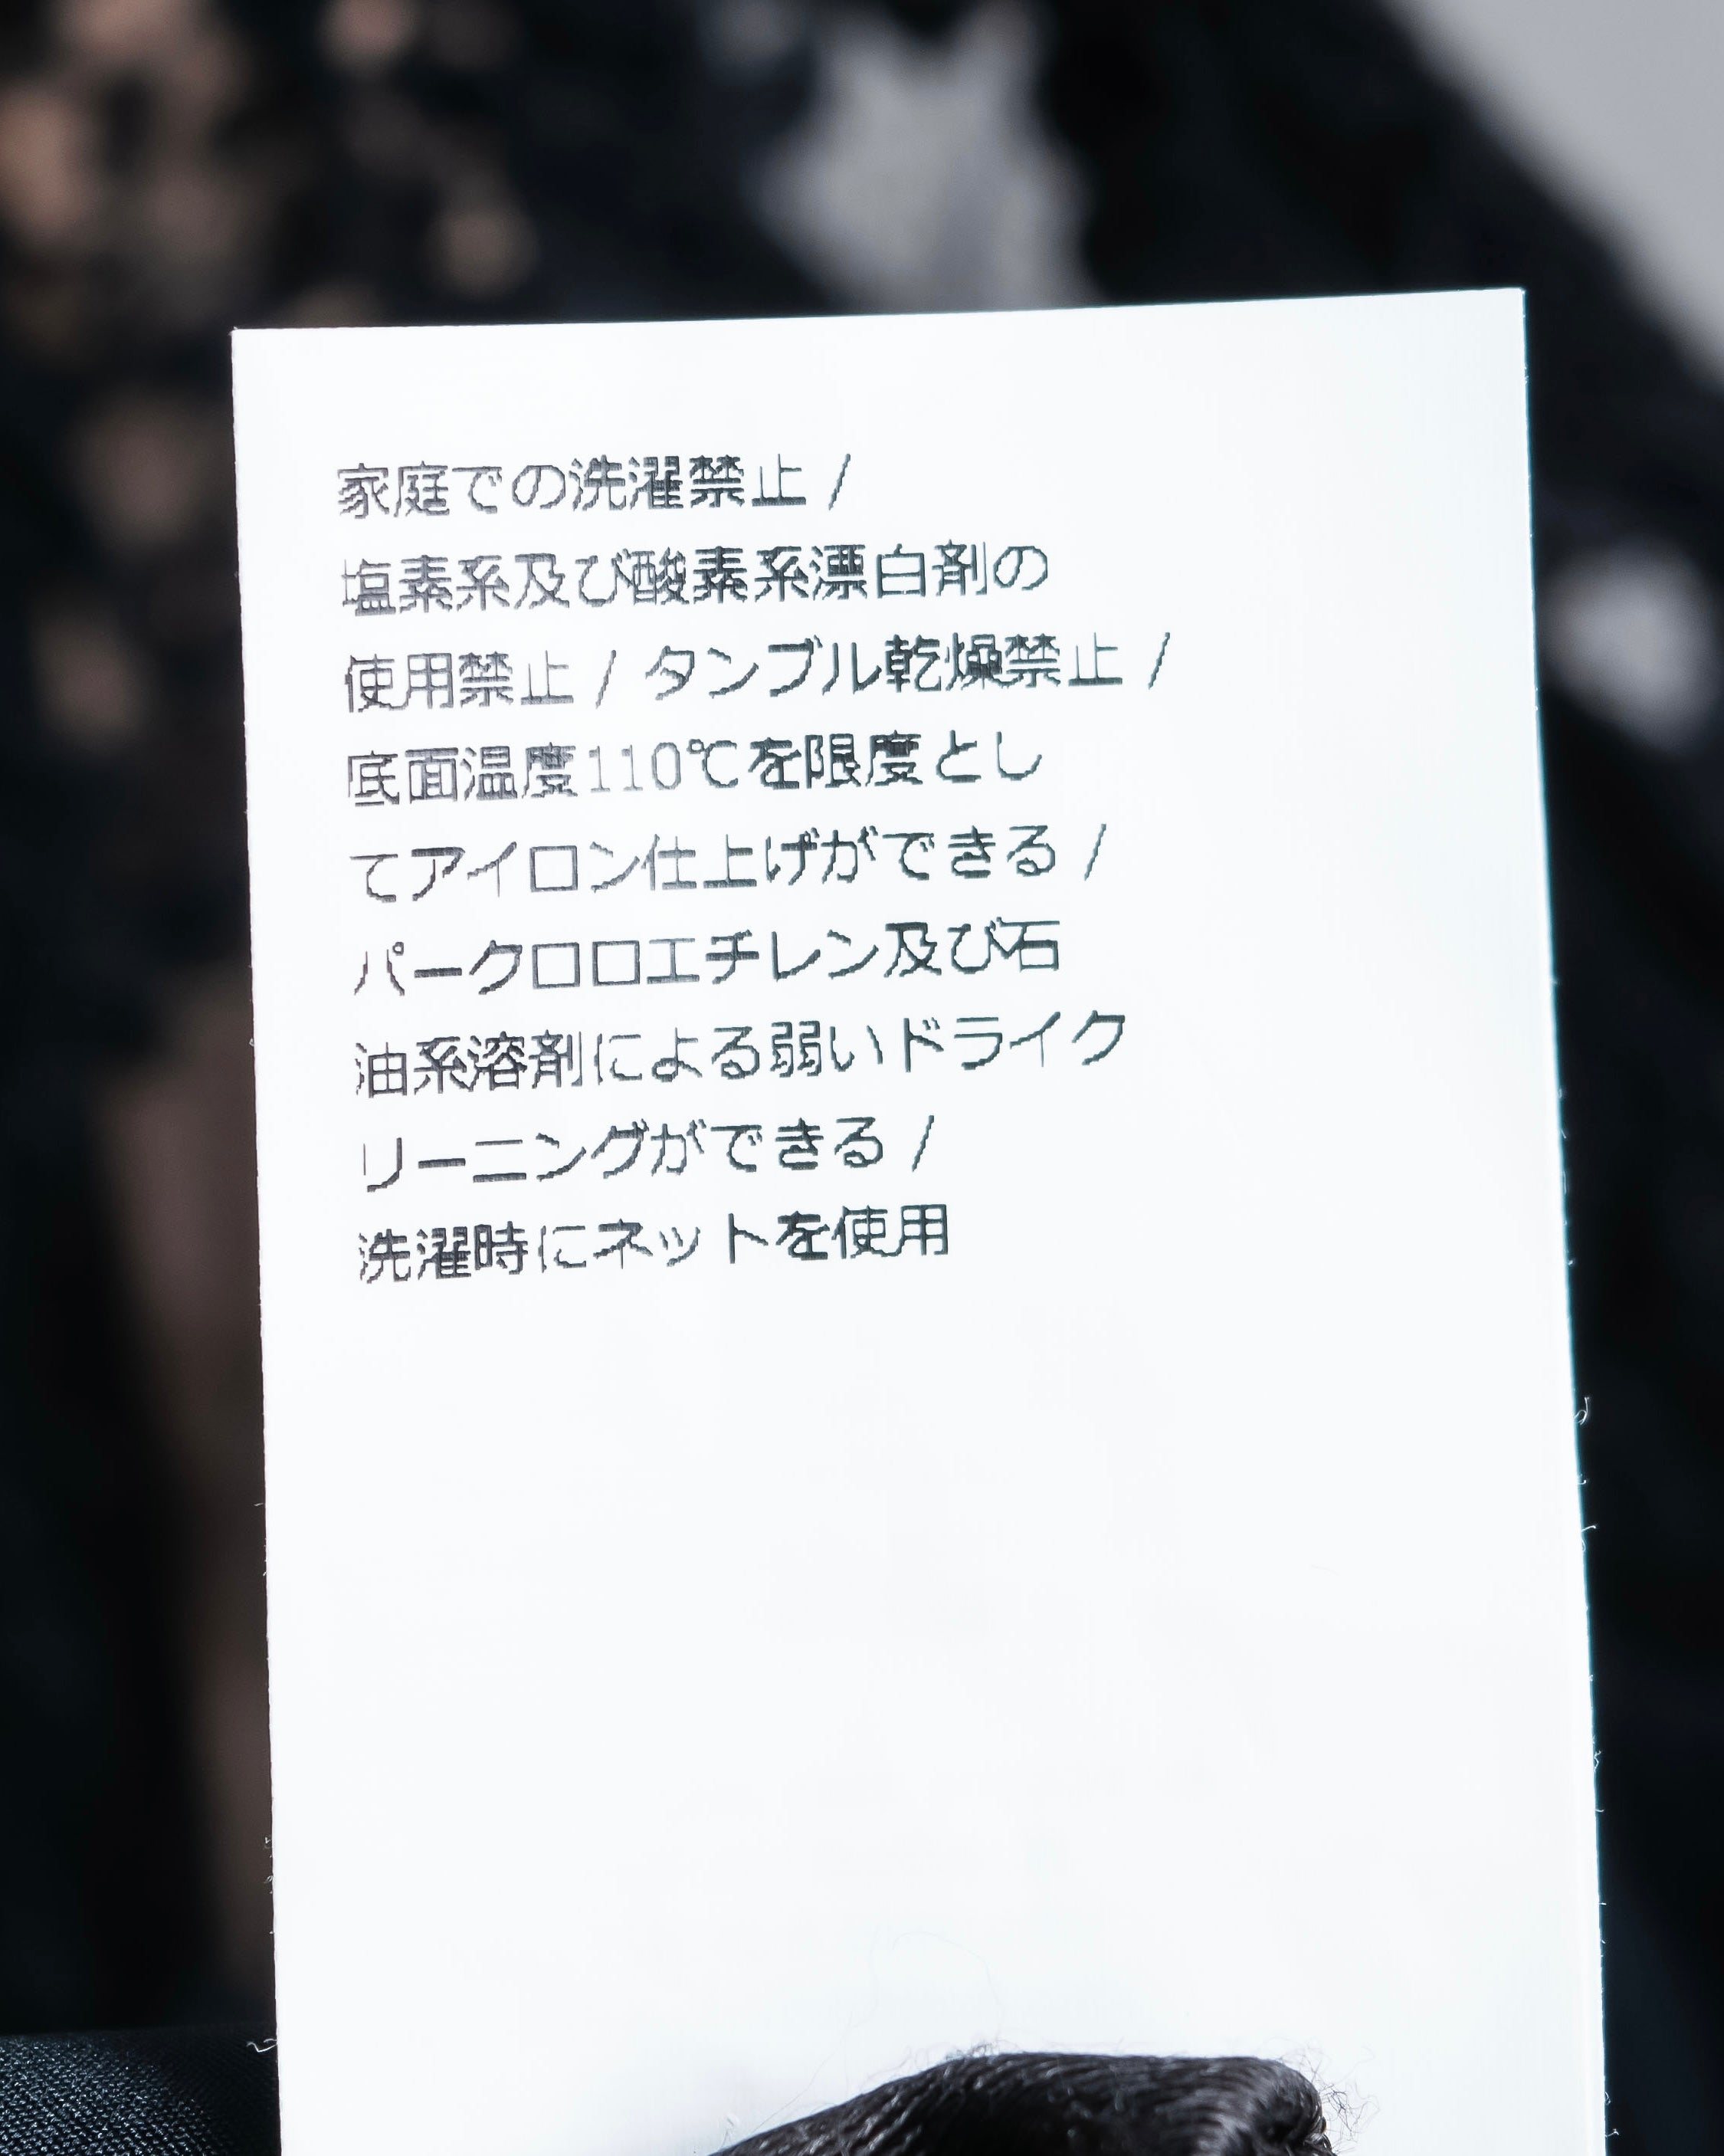 家庭での洗濯禁止 /
塩素系及び酸素系漂白剤の
使用禁止 / タンブル乾燥禁止 /
底面温度110℃を限度とし
てアイロン仕上げができる /
パークロロエチレン及び石
油系溶剤による弱いドライク
リーニングができる /
洗濯時にネットを使用